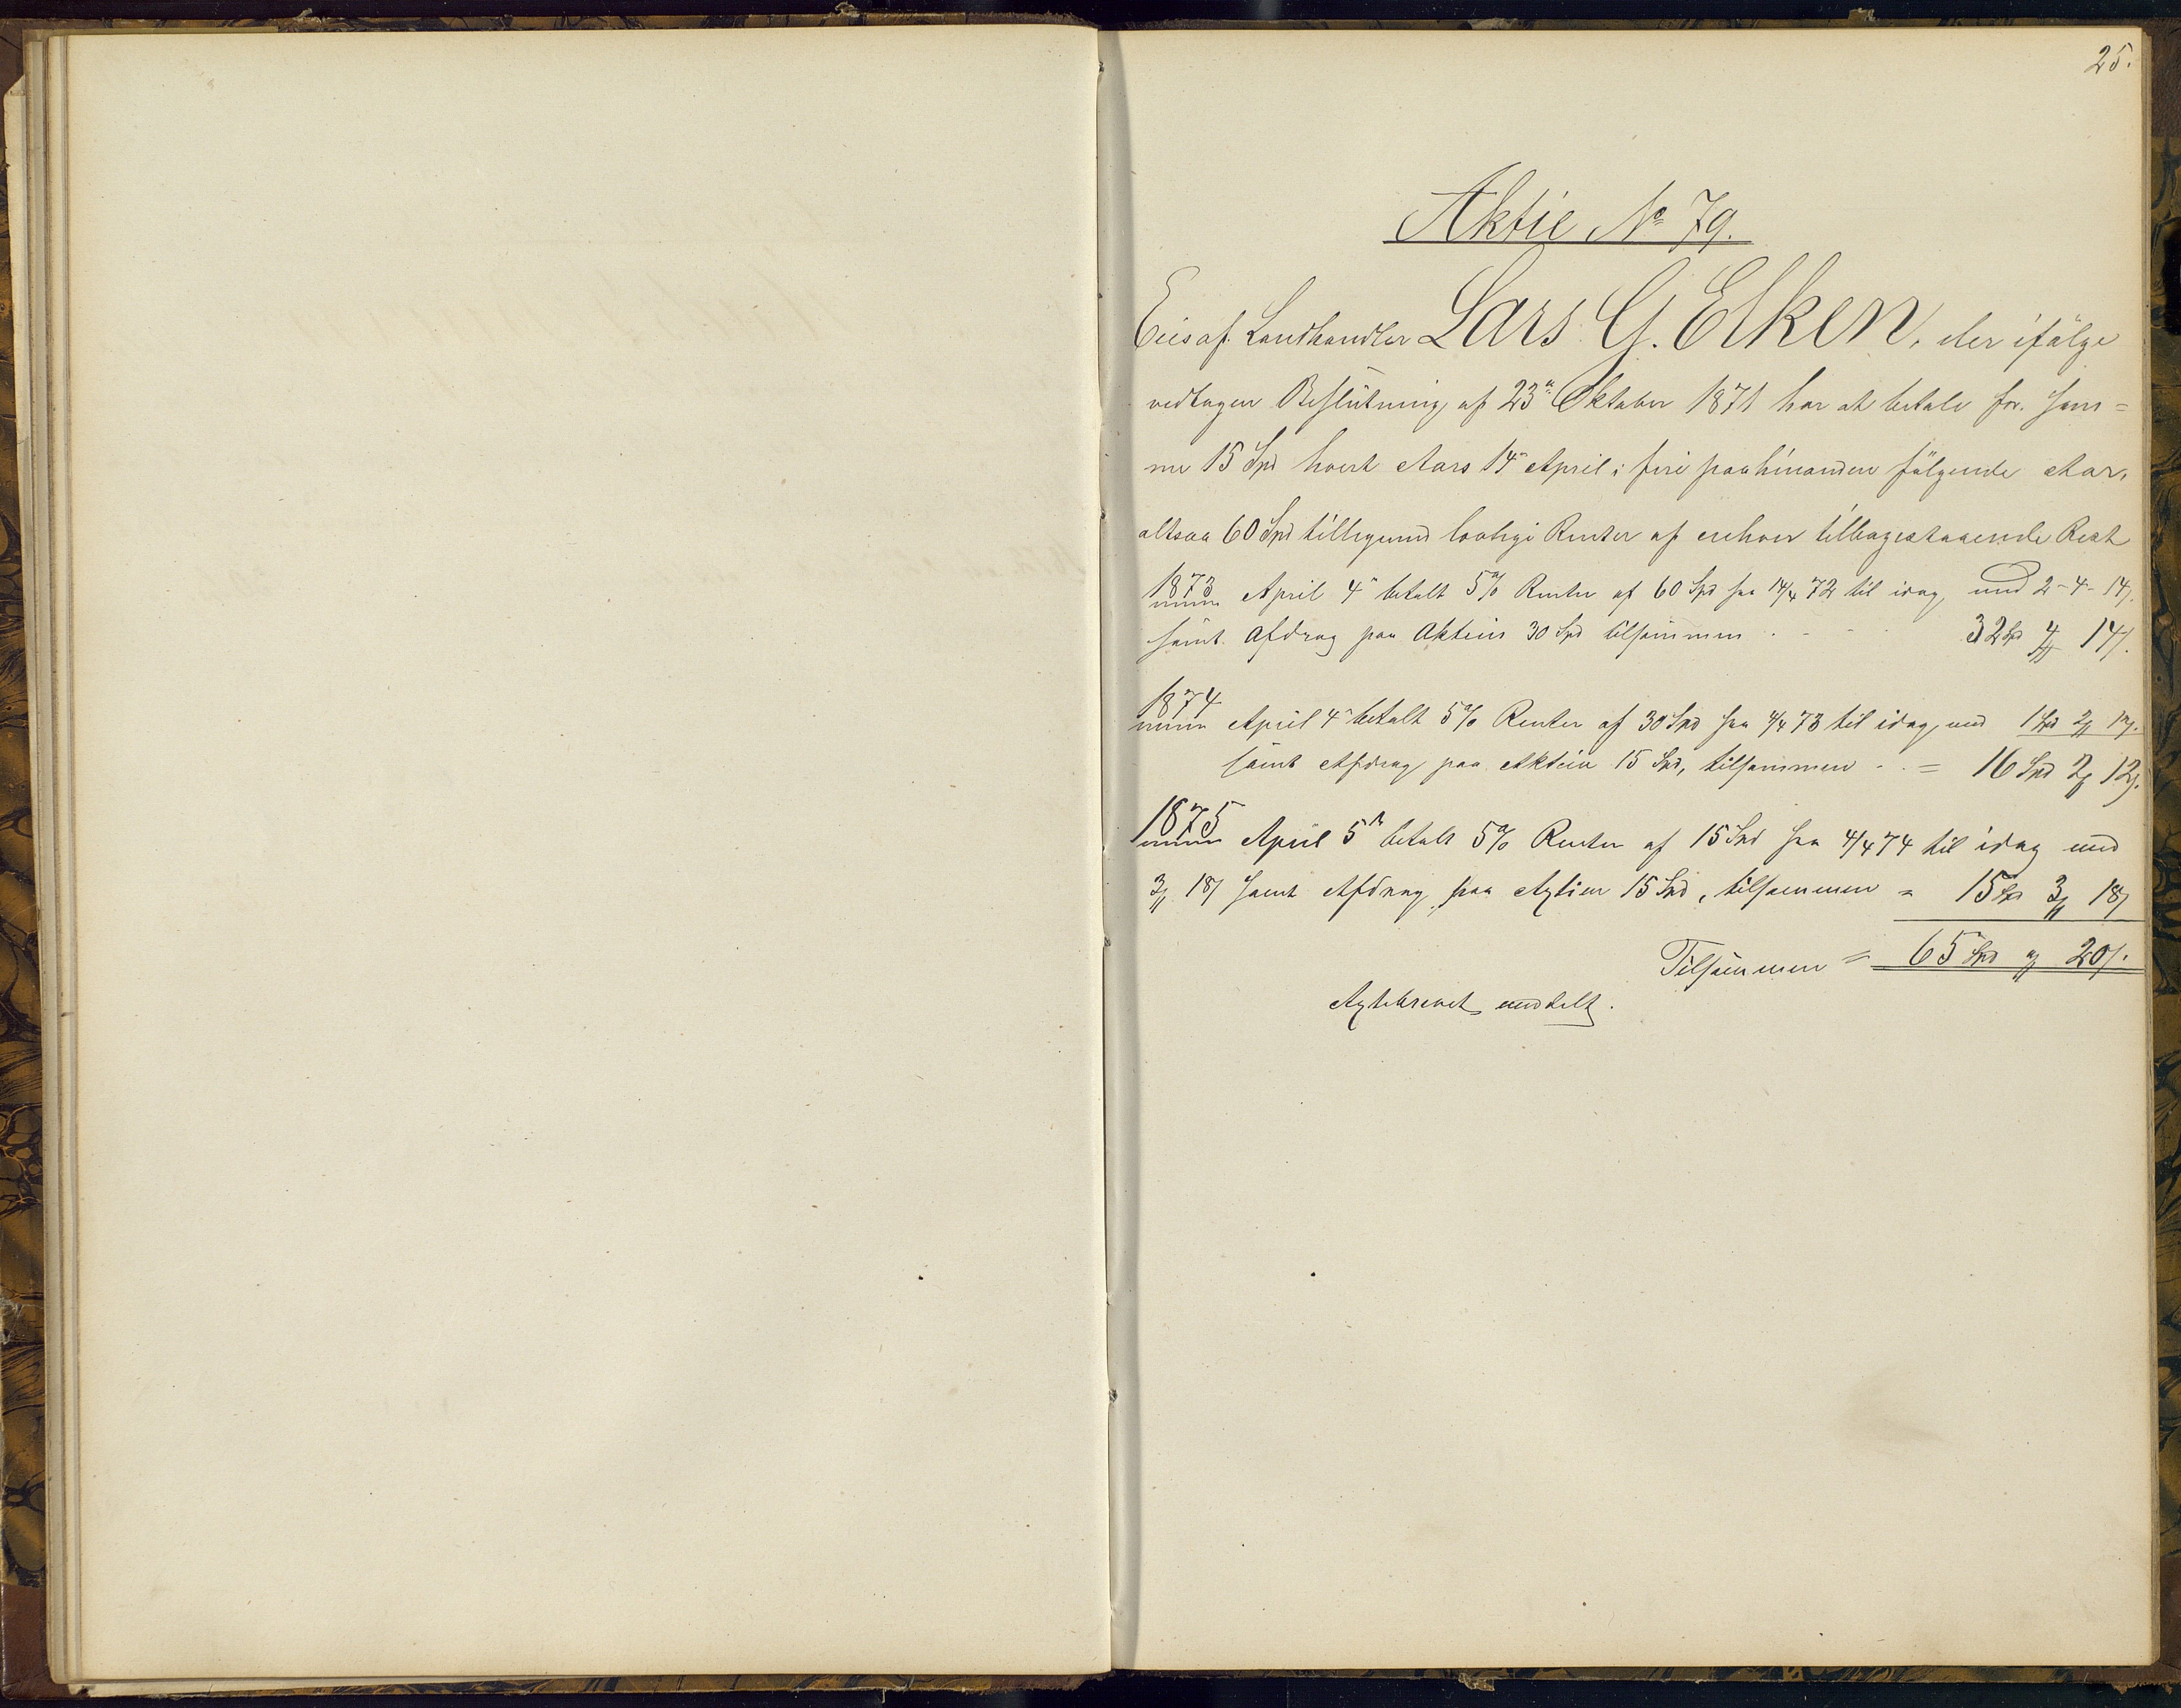 25.
Aktie № 79.
Eies af Landhandler Lars G. Eken, der ifølge
vedtagen Beslutning af 23de Oktober 1871 har at betale for sam=
me 15 Spd hvert Aars 14de April i fire paahinanden følgende Aar,
altsaa 60 Spd tilligemed lovlige Renter af enhver tilbagestaaende Rest
1873 April 4de betalt 5% Renter af 60 Spd fra 14/4 72 til idag, med 2-4-14ß.
samt Afdrag paa Aktien 30 Spd tilsammen . - - 32 Spd 4 14ß.
1874 April 4de betalt 5% Renter af 30 Spd fra 4/4 73 til idag, med 1 Spd 2 12ß.
samt Afdrag paa Aktien 15 Spd, tilsammen - . = 16 Spd 2 12ß.
1875 April 5te betalt 5% Renter af 15 Spd fra 4/4 74 til idag med
3 18ß samt Afdrag paa Aktien 15 Spd, tilsammen = 15 Spd 3 18ß
Tilsammen = 65 Spd " 20ß.
Aktebrevet meddelt.